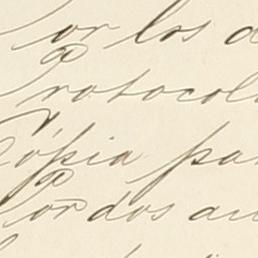 Por los d
Protocol
Copia pa
Por dos au